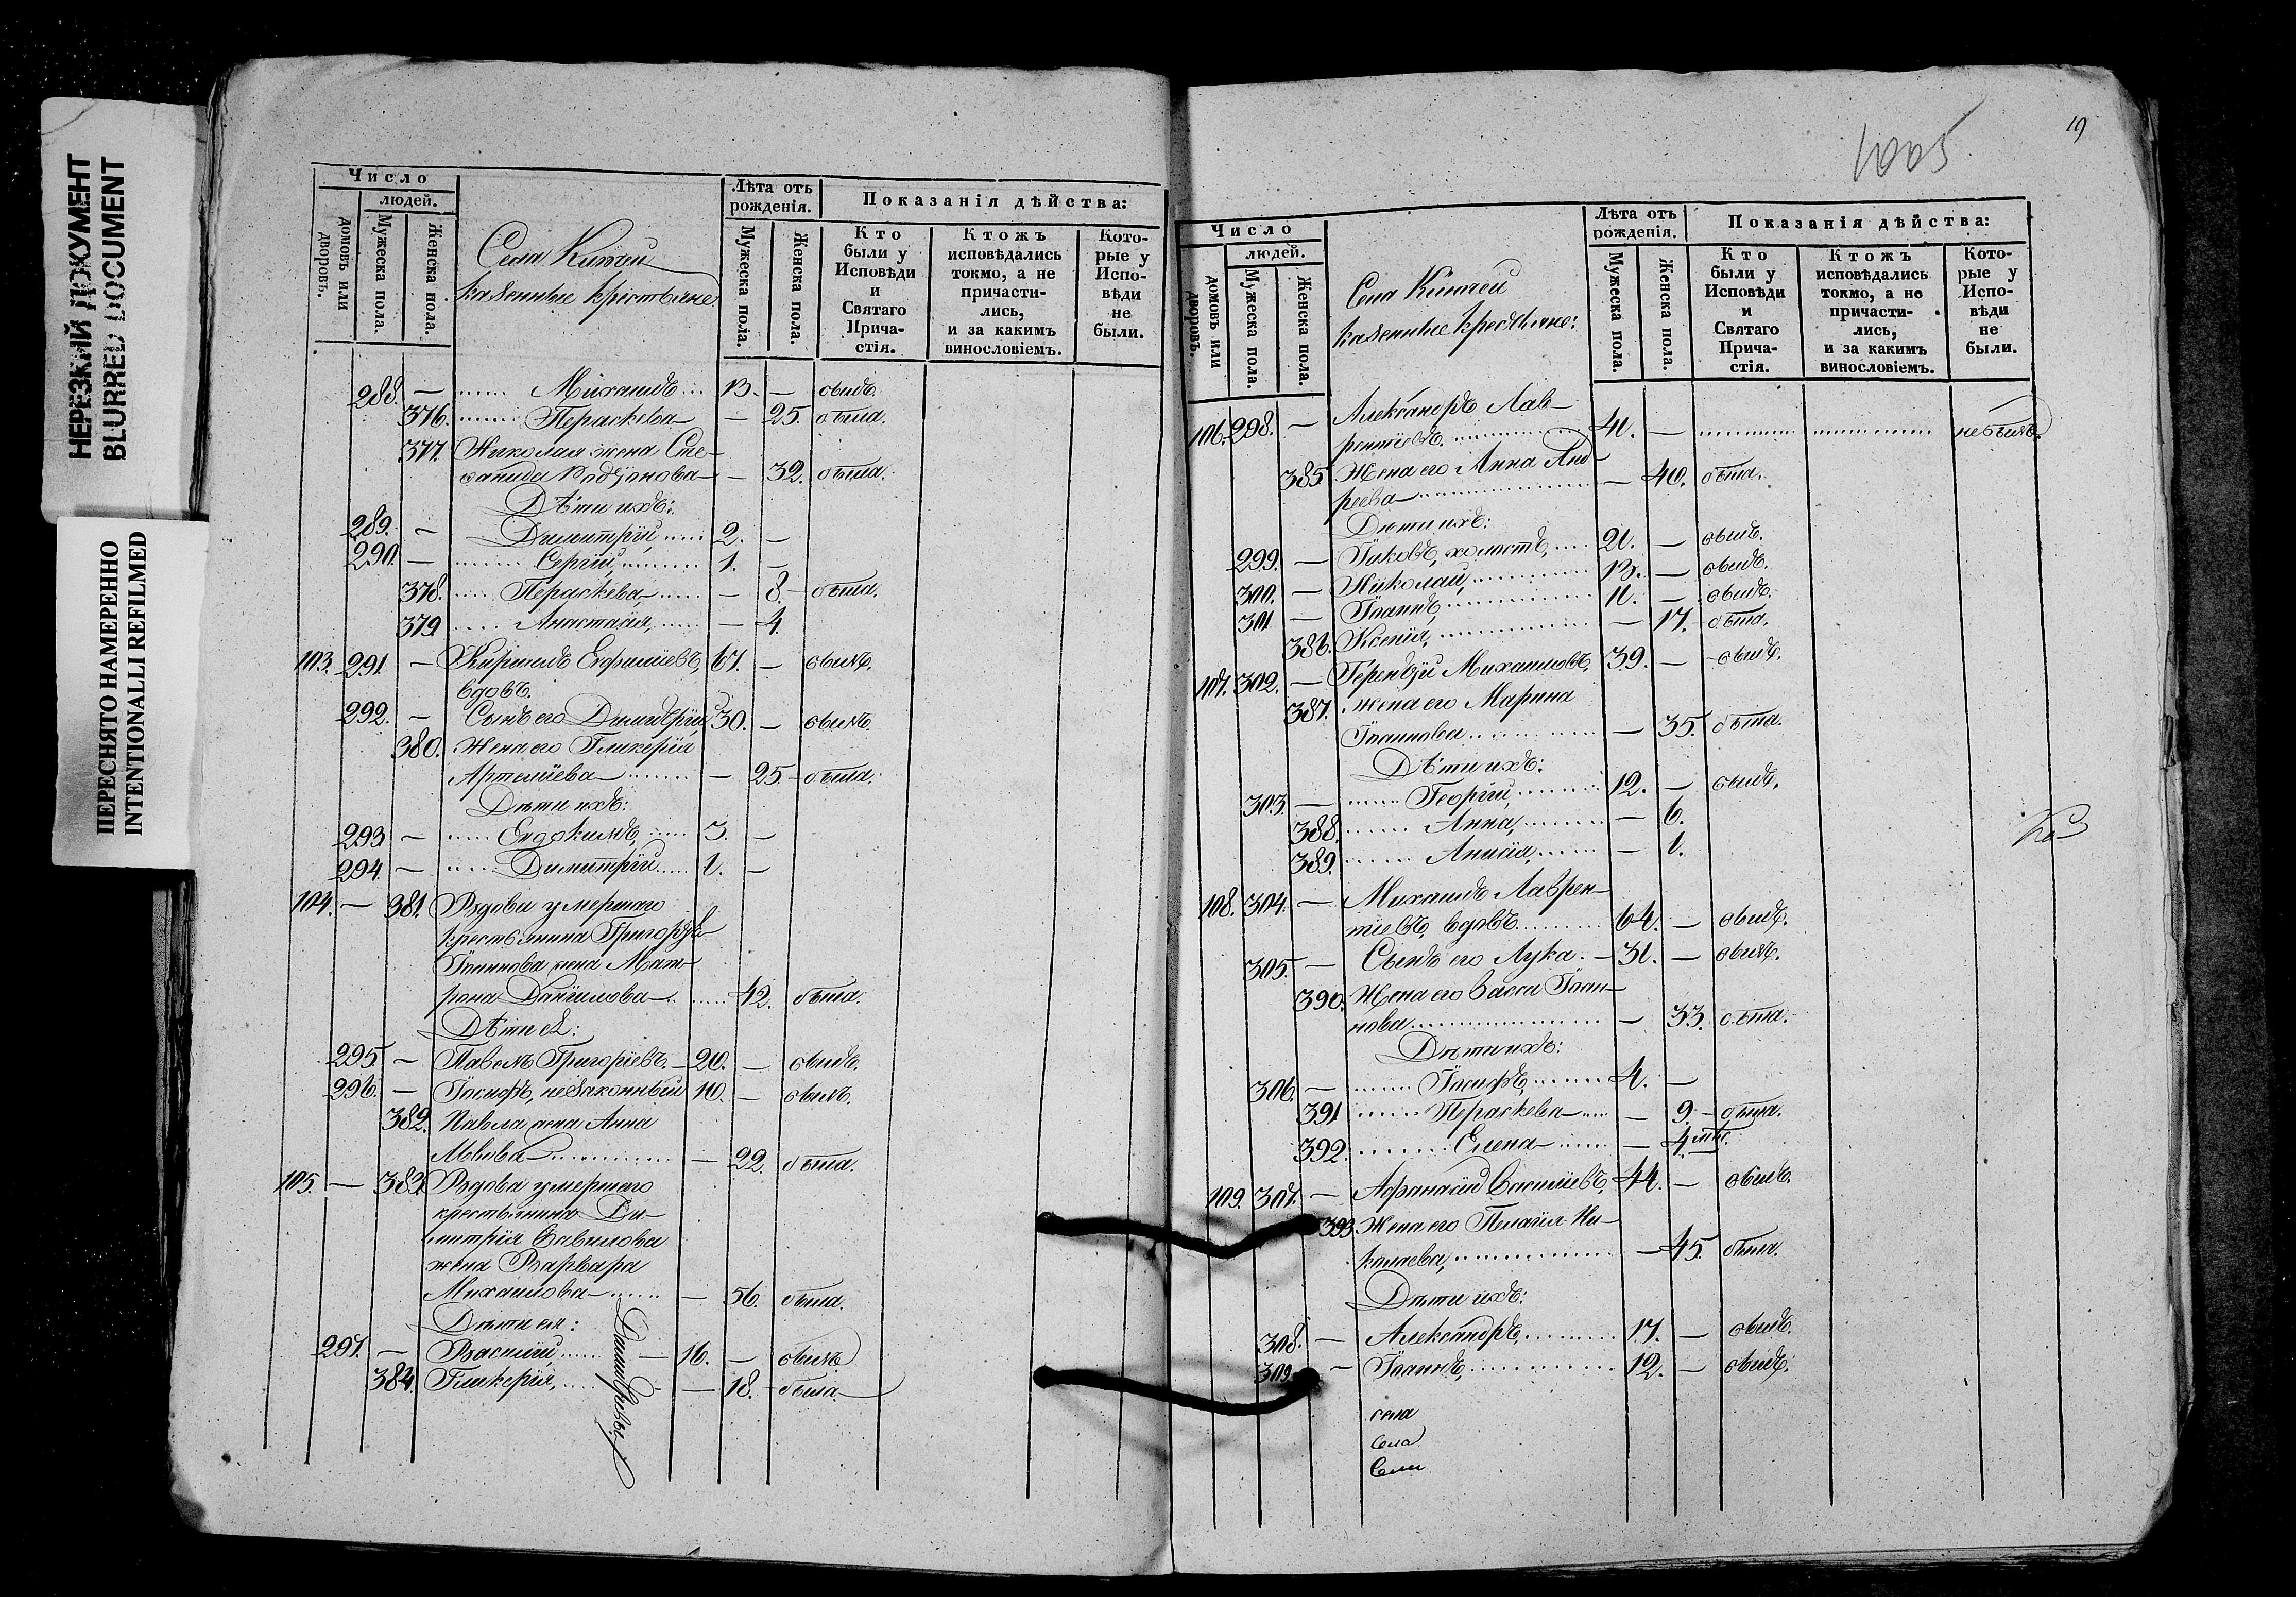 НЕРЕЗКИЙ ДОКУМЕНТ
BLURRED DOCUMENT
ПЕРЕСНЯТО НАМЕРЕННО
INTENTIONALLI REFILMED
Число
людей.
домовъ или дворовъ.
Мужеска пола.
Женска пола.
Села Китчей
казенные крестьяне
Лѣта отъ рожденія.
Мужеска пола.
Женска пола.
Показанія дѣйства:
Кто были у Исповѣди и Святаго Прича-стія.
Ктожъ исповѣдались токмо, а не причасти-лись, и за какимъ винословіемъ.
Кото-рые у Испо-вѣди не были.
288. — Михаилъ 13. — былъ.
376. Параскева — 25. была.
377. Николая жена Сте-
фанида Родіонова — 32. была.
Дѣти ихъ:
289. — Димитрій, 2. —
290. — Сергій, 1. —
378. Параскева, — 8. — была.
379 Анастасія, — 4.
103. 291. — Кириллъ Евфиміевъ, 67. — былъ.
вдовъ.
292. — Сынъ его Димитрій, 30. — былъ.
380. Жена его Гликерія
Артеміева — 25. — была.
Дѣти ихъ:
293 — Евдокимъ, 3. —
294. — Димитрій 1. —
104. — 381. Вдова умершаго
крестьянина Григорія
Іоаннова жена Мат-
рона Даніилова 42. была.
Дѣти ея:
295. — Павелъ Григоріевъ. — 20. — былъ.
296. — Іосифъ, незаконный 10. — былъ.
382. Павла жена Анна
— 22. была.
105. — 383. Вдова умершаго
крестьянина Ди-
митрія Вавилова
жена Варвара
Михаилова — 56. была.
Дѣти ея:
297. — Василій, — 16. — былъ
384. Гликерія, — 18. — была
Димитріевы.
1005
19
Число
людей.
домовъ или дворовъ.
Мужеска пола.
Женска пола.
Села Китчей
казенные крестьяне:
Лѣта отъ рожденія.
Мужеска пола.
Женска пола.
Показанія дѣйства:
Кто были у Исповѣди и Святаго Прича-стія.
Ктожъ исповѣдались токмо, а не причасти-лись, и за какимъ винословіемъ.
Кото-рые у Испо-вѣди не были.
106. 298. — Александръ Лав-
рентіевъ 41. — не былъ.
385 Жена его Анна Анд-
реева — 40. была.
Дѣти ихъ:
299. — Іаковъ, холостъ, 21. — былъ.
300. — Николай, 13. — былъ.
301 — Іоаннъ, 11. — былъ.
386. Ксенія, — 17. — была.
107. 302. — Терентій Михаиловъ, 39. — былъ.
387. жена его Марина
Іоаннова — 35. была.
Дѣти ихъ:
303 — Георгій, 12. — былъ.
388. Анна, — 6.
389. Анисія, — 1.
108. 304. — Михаилъ Лаврен-
тіевъ, вдовъ 64. — былъ.
305. — Сынъ его Лука. — 31. — былъ.
390. Жена его Васса Іоан-
нова — 33. была.
Дѣти ихъ:
306. — Іосифъ, 4. —
391 Параскева — 9. — была.
392. Елена — 4. мѣс.
109. 307. — Афанасій Василіевъ, 44. — былъ.
393. Жена его Пелагія Ни-
колаева, — 45. была.
Дѣти ихъ:
308. — Александръ, 17. — былъ.
309. — Іоаннъ, 12. — былъ.
села
Села
Села